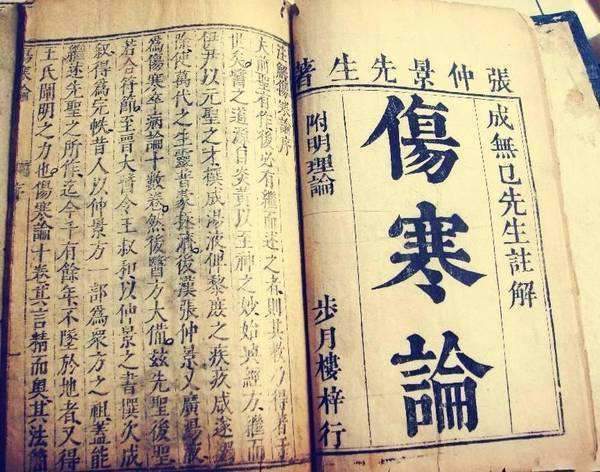 張仲景先生著
成無已先生註解
傷寒論
附明理論
步月樓梓行
注解傷寒論序
夫前聖有作後必有繼而述之者則其教乃得著于
世矣醫之道源自炎黃以至神之妙始興經方繼而
伊尹以元聖之才撰成湯液俾黎庶之疾疚咸遂
除使萬代之生靈普蒙拯濟後漢張仲景又廣湯液
為傷寒卒病論十數卷然後醫方大備茲先聖後聖
若合符節至晉太醫令王叔和以仲景之書撰次成
敘得為完帙昔人以仲景方一部為眾方之祖蓋能
繼述先聖之所作迄今千有餘年不墜於地者又得
王氏闡明之力也傷寒論十卷其言精而奧其法簡
傷寒論